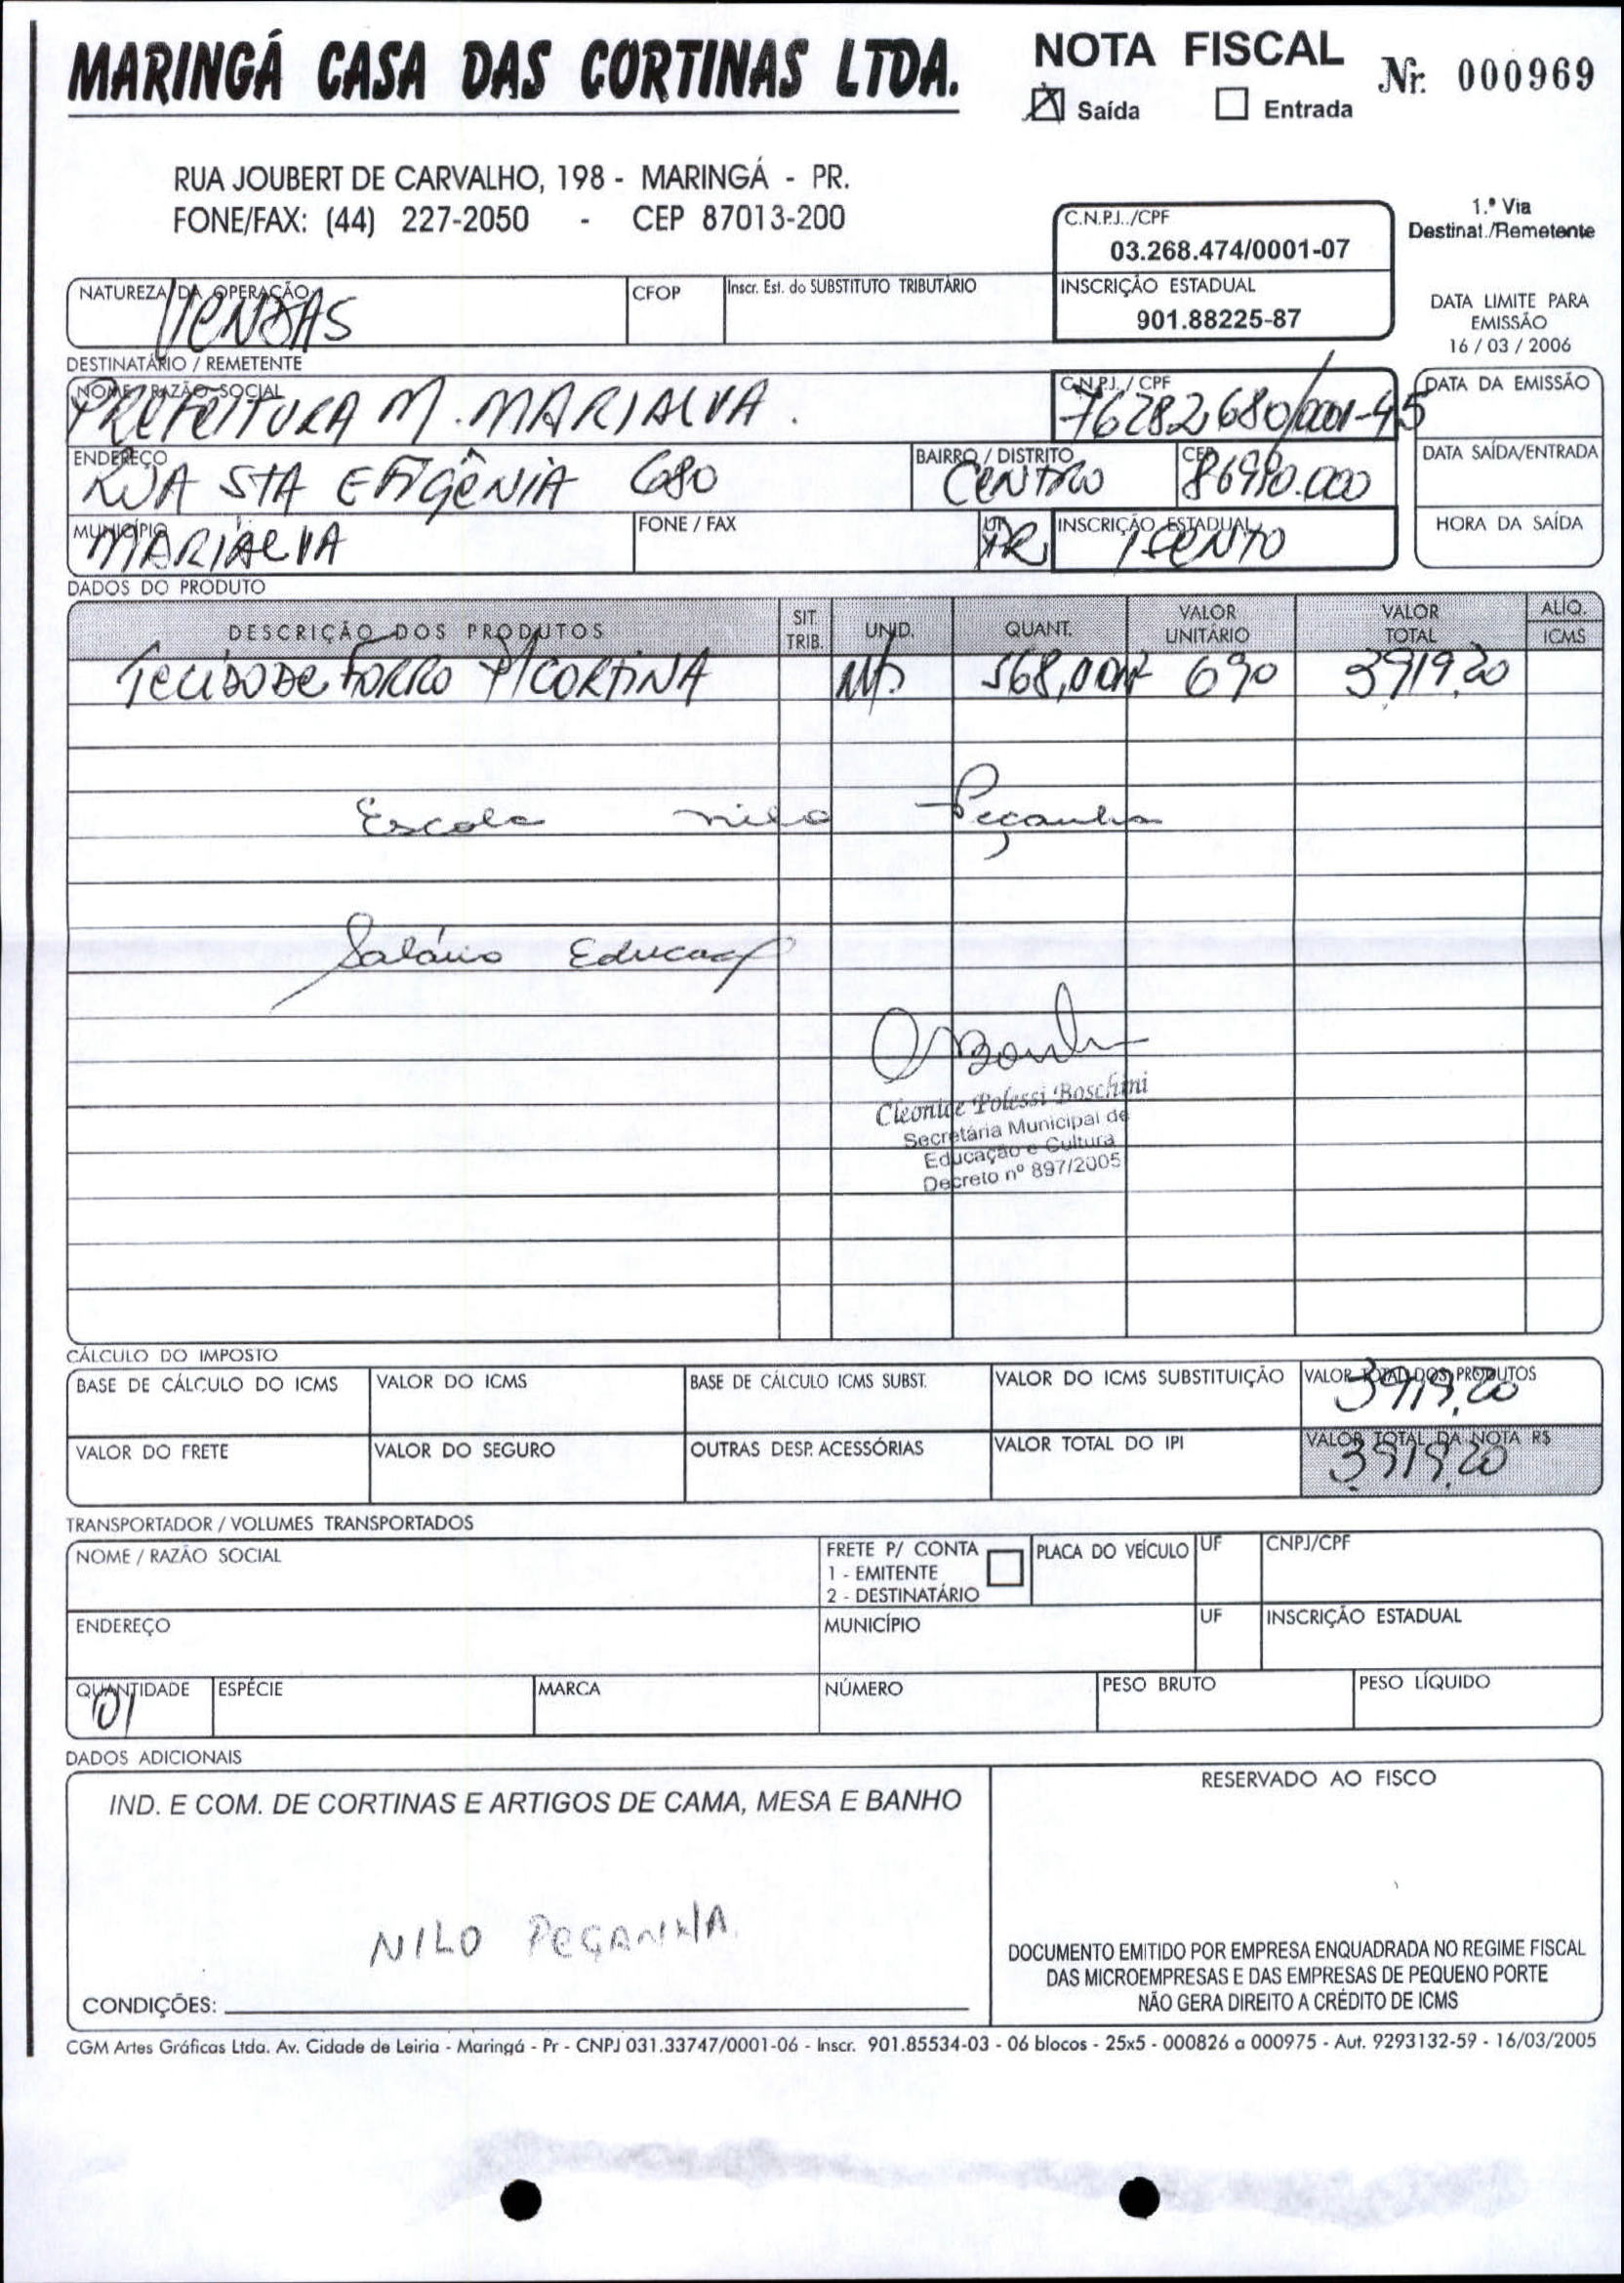 MARINGÁ CASA DAS CORTINAS LTDA.
NOTA FISCAL
Nr. 000969
Saída Entrada
RUA JOUBERT DE CARVALHO, 198 - MARINGÁ - PR.
FONE/FAX: (44) 227-2050 - CEP 87013-200
1.ª Via
Destinat./Remetente
C.N.P.J../CPF
03.268.474/0001-07
INSCRIÇÃO ESTADUAL
901.88225-87
DATA LIMITE PARA
EMISSÃO
16 / 03 / 2006
NATUREZA DA OPERAÇÃO
VENDAS
CFOP
Inscr. Est. do SUBSTITUTO TRIBUTÁRIO
DESTINATÁRIO / REMETENTE
NOME / RAZÃO SOCIAL
PREFEITURA M. MARIALVA.
C.N.P.J. / CPF
76282680/0001-45
DATA DA EMISSÃO
ENDEREÇO
RUA STA EFIGÊNIA 680
BAIRRO / DISTRITO
CENTRO
CEP
86990.000
DATA SAÍDA/ENTRADA
MUNICÍPIO
MARIALVA
FONE / FAX
UF
PR
INSCRIÇÃO ESTADUAL
ISENTO
HORA DA SAÍDA
DADOS DO PRODUTO
DESCRIÇÃO DOS PRODUTOS SIT. TRIB. UNID. QUANT. VALOR UNITÁRIO VALOR TOTAL ALÍQ. ICMS
TECIDO DE FORRO P/CORTINA 568,00 690 3919,20
Escola Nilo Peçanha
Salário Educaç
Cleonice Polessi Boschini
Secretária Municipal de
Educação e Cultura
Decreto nº 897/2005
CÁLCULO DO IMPOSTO
BASE DE CÁLCULO DO ICMS VALOR DO ICMS BASE DE CÁLCULO ICMS SUBST. VALOR DO ICMS SUBSTITUIÇÃO VALOR TOTAL DOS PRODUTOS
3919,20
VALOR DO FRETE VALOR DO SEGURO OUTRAS DESP. ACESSÓRIAS VALOR TOTAL DO IPI VALOR TOTAL DA NOTA R$
3919,20
TRANSPORTADOR / VOLUMES TRANSPORTADOS
NOME / RAZÃO SOCIAL
FRETE P/ CONTA
1 - EMITENTE
2 - DESTINATÁRIO
PLACA DO VEÍCULO UF CNPJ/CPF
ENDEREÇO MUNICÍPIO UF INSCRIÇÃO ESTADUAL
QUANTIDADE ESPÉCIE MARCA NÚMERO PESO BRUTO PESO LÍQUIDO
01
DADOS ADICIONAIS
IND. E COM. DE CORTINAS E ARTIGOS DE CAMA, MESA E BANHO
NILO PEÇANHA
CONDIÇÕES:
RESERVADO AO FISCO
DOCUMENTO EMITIDO POR EMPRESA ENQUADRADA NO REGIME FISCAL
DAS MICROEMPRESAS E DAS EMPRESAS DE PEQUENO PORTE
NÃO GERA DIREITO A CRÉDITO DE ICMS
CGM Artes Gráficas Ltda. Av. Cidade de Leiria - Maringá - Pr - CNPJ 031.33747/0001-06 - Inscr. 901.85534-03 - 06 blocos - 25x5 - 000826 a 000975 - Aut. 9293132-59 - 16/03/2005